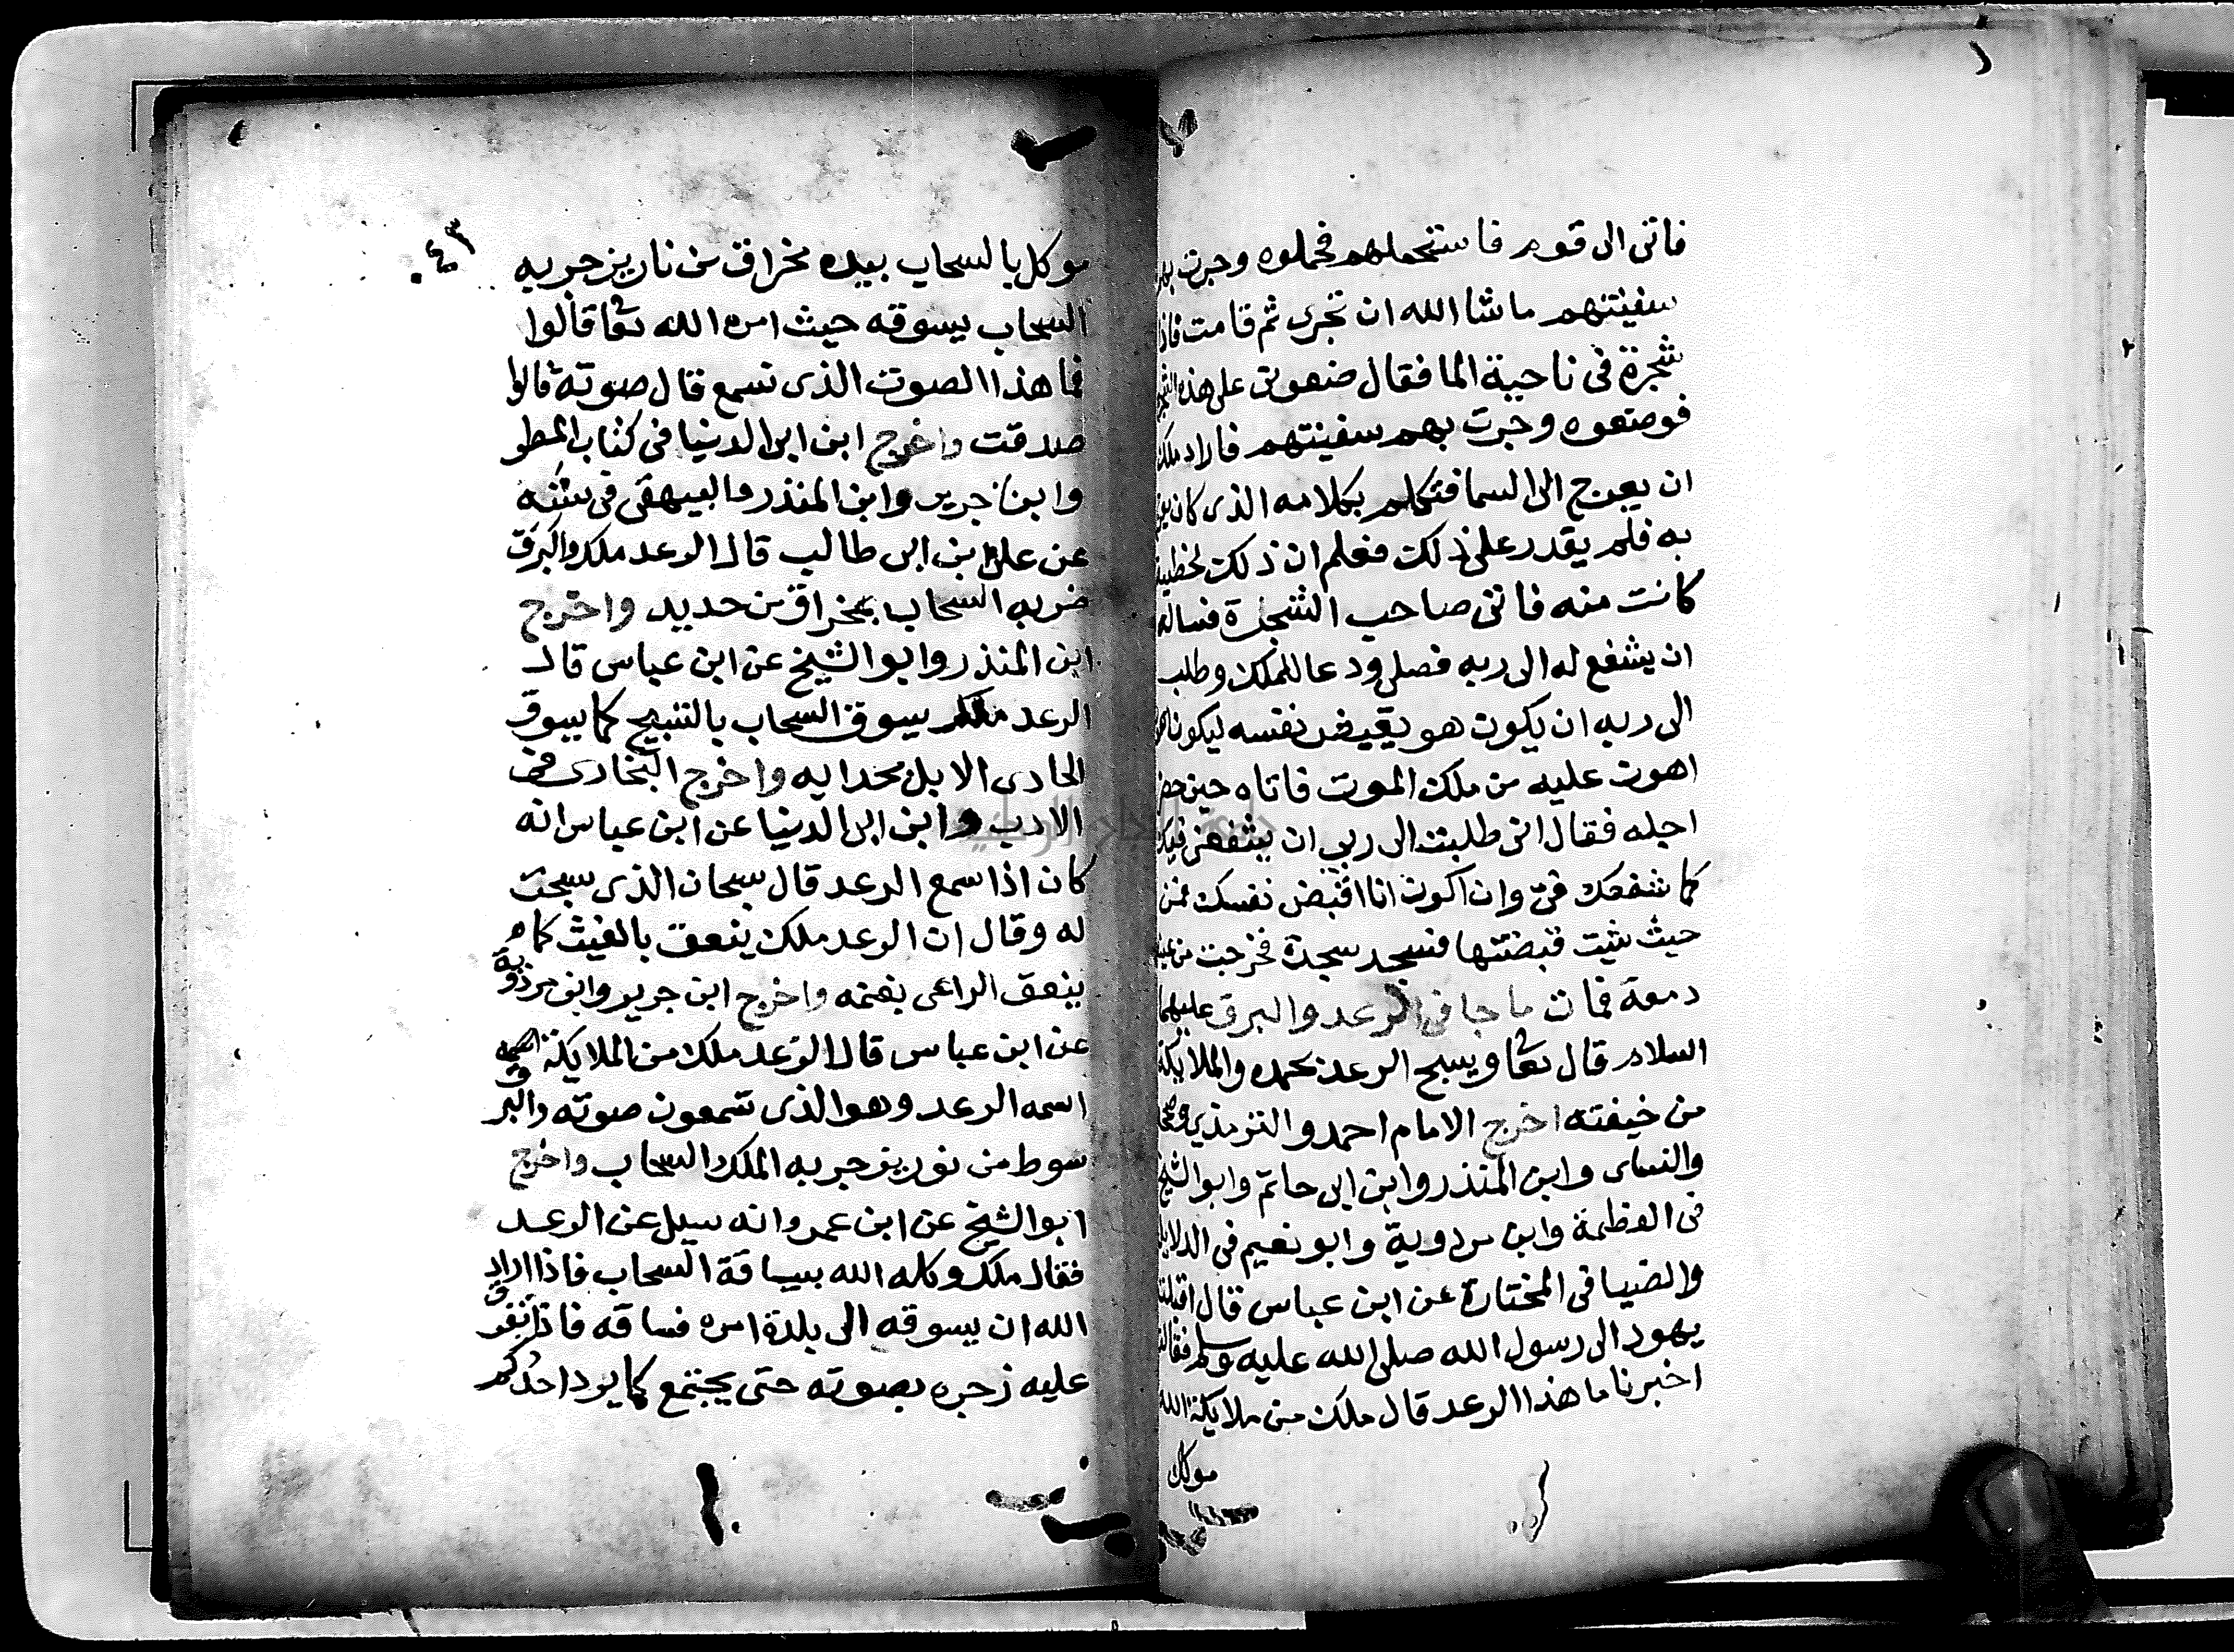 فاتى الى قوم فاستحملهم فحملوه وجرت بهم
سفينتهم ما شا الله ان تجرى ثم قامت فاذا
شجرة فى ناحية الما فقال ضعونى على هذه الشجرة
فوضعوه وجرت بهم سفينتهم فاراد ملك
ان يعرج الى السما فتكلم بكلامه الذى كان يعرج
به فلم يقدر على ذلك فعلم ان ذلك لخطية
كانت منه فاتى صاحب الشجرة فساله
ان يشفع له الى ربه فصلى ودعا للملك وطلب
الى ربه ان يكون هو يقبض نفسه ليكون
اهون عليه من ملك الموت فاتاه حين حضر
اجله فقال انى طلبت الى ربى ان يشفعنى فيك
كما شفعك فى وان اكون انا اقبض نفسك فمن
حيث شيت قبضتها فسجد سجدة فخرجت من عينه
دمعة فمات ما جا فى الرعد والبرق عليهما
السلام قال تعا ويسبح الرعد بحمده والملايكة
من خيفته اخرج الامام احمد والترمذى وصححه
والنساى وابن المنذر وابن ابى حاتم وابو الشيخ
فى العظمة وابن مردوية وابو نعيم فى الدلايل
والضيا فى المختارة عن ابن عباس قال اقبلت
يهود الى رسول الله صلى الله عليه وسلم فقالوا
اخبرنا ما هذا الرعد قال ملك من ملايكة الله
موكل
٠٤٣
موكل بالسحاب بيده مخراق من نار يزجر به
السحاب يسوقه حيث امره الله تعا قالوا
فما هذا الصوت الذى نسمع قال صوته قالوا
صدقت واخرج ابن ابى الدنيا فى كتاب المطر
وابن جرير وابن المنذر والبيهقى فى سننه
عن على ابن ابى طالب قال الرعد ملك والبرق
ضربه السحاب بمخراق من حديد واخرج
ابن المنذر وابو الشيخ عن ابن عباس قال
الرعد ملك يسوق السحاب بالتسبيح كما يسوق
الحادى الابل بحدايه واخرج البخارى فى
الادب وابن ابى الدنيا عن ابن عباس انه
كان اذا سمع الرعد قال سبحان الذى سبحت
له وقال ان الرعد ملك ينعق بالغيث كما
ينعق الراعى بغنمه واخرج ابن جرير وابن مردوية
عن ابن عباس قال الرعد ملك من الملايكة
اسمه الرعد وهو الذى تسمعون صوته والبرق
سوط من نور يزجر به الملك السحاب واخرج
ابو الشيخ عن ابن عمر وانه سيل عن الرعد
فقال ملك وكله الله بسياقة السحاب فاذا اراد
الله ان يسوقه الى بلدة امره فساقه فاذا تفرق
عليه زجره بصوته حتى يجتمع كما يرد احدكم